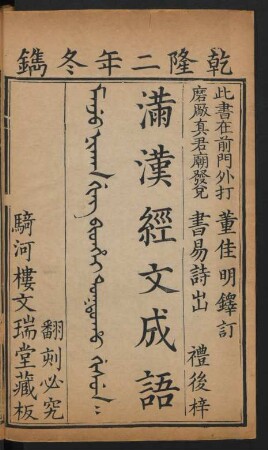 乾隆二年冬鐫
此書在前門外打
磨厰真君廟發兌
董佳明鐸訂
書易詩出 禮後梓
滿漢經文成語
翻刻必究
騎河樓文瑞堂藏板